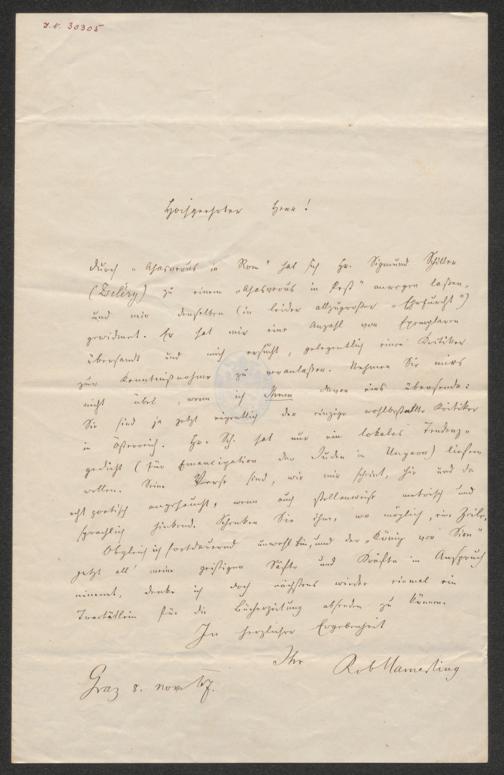 J.N. 30305
Hochgeehrter Herr!
Durch „Ahasverus in Rom" hat sich Hr. Sigmund Schiller
(Zeléry) zu einem „Ahasverus in Pest" anregen lassen,
und mir denselben (in leider allzugroßer „Ehrfurcht")
gewidmet. Er hat mir eine Anzahl von Exemplaren
übersandt und mich ersucht, gelegentlich einen Kritiker
zur Kenntnißnahme zu veranlassen. Nehmen Sie mirs
nicht übel, wenn ich Ihnen davon eines übersende:
Sie sind ja jetzt eigentlich der einzige wohlbestallte Kritiker
in Österreich. Hr. Sch. hat nur ein lokales Tendenz-
gedicht (für Emancipation der Juden in Ungarn) liefern
wollen. Seine Verse sind, wie mir scheint, hie und da
echt poetisch angehaucht, wenn auch stellenweise metrisch und
sprachlich hinkend. Schenken Sie ihm, wo möglich, ein Zeilchen.
Obgleich ich fortdauernd unwohl bin, und der „König von Sion"
jetzt all' meine geistigen Säfte und Kräfte in Anspruch
nimmt, denke ich doch nächstens wieder einmal ein
Traktätlein für die Bücherzeitung absenden zu können.
In herzlicher Ergebenheit
Ihr Rob Hamerling
Graz 8. Nov. 67.